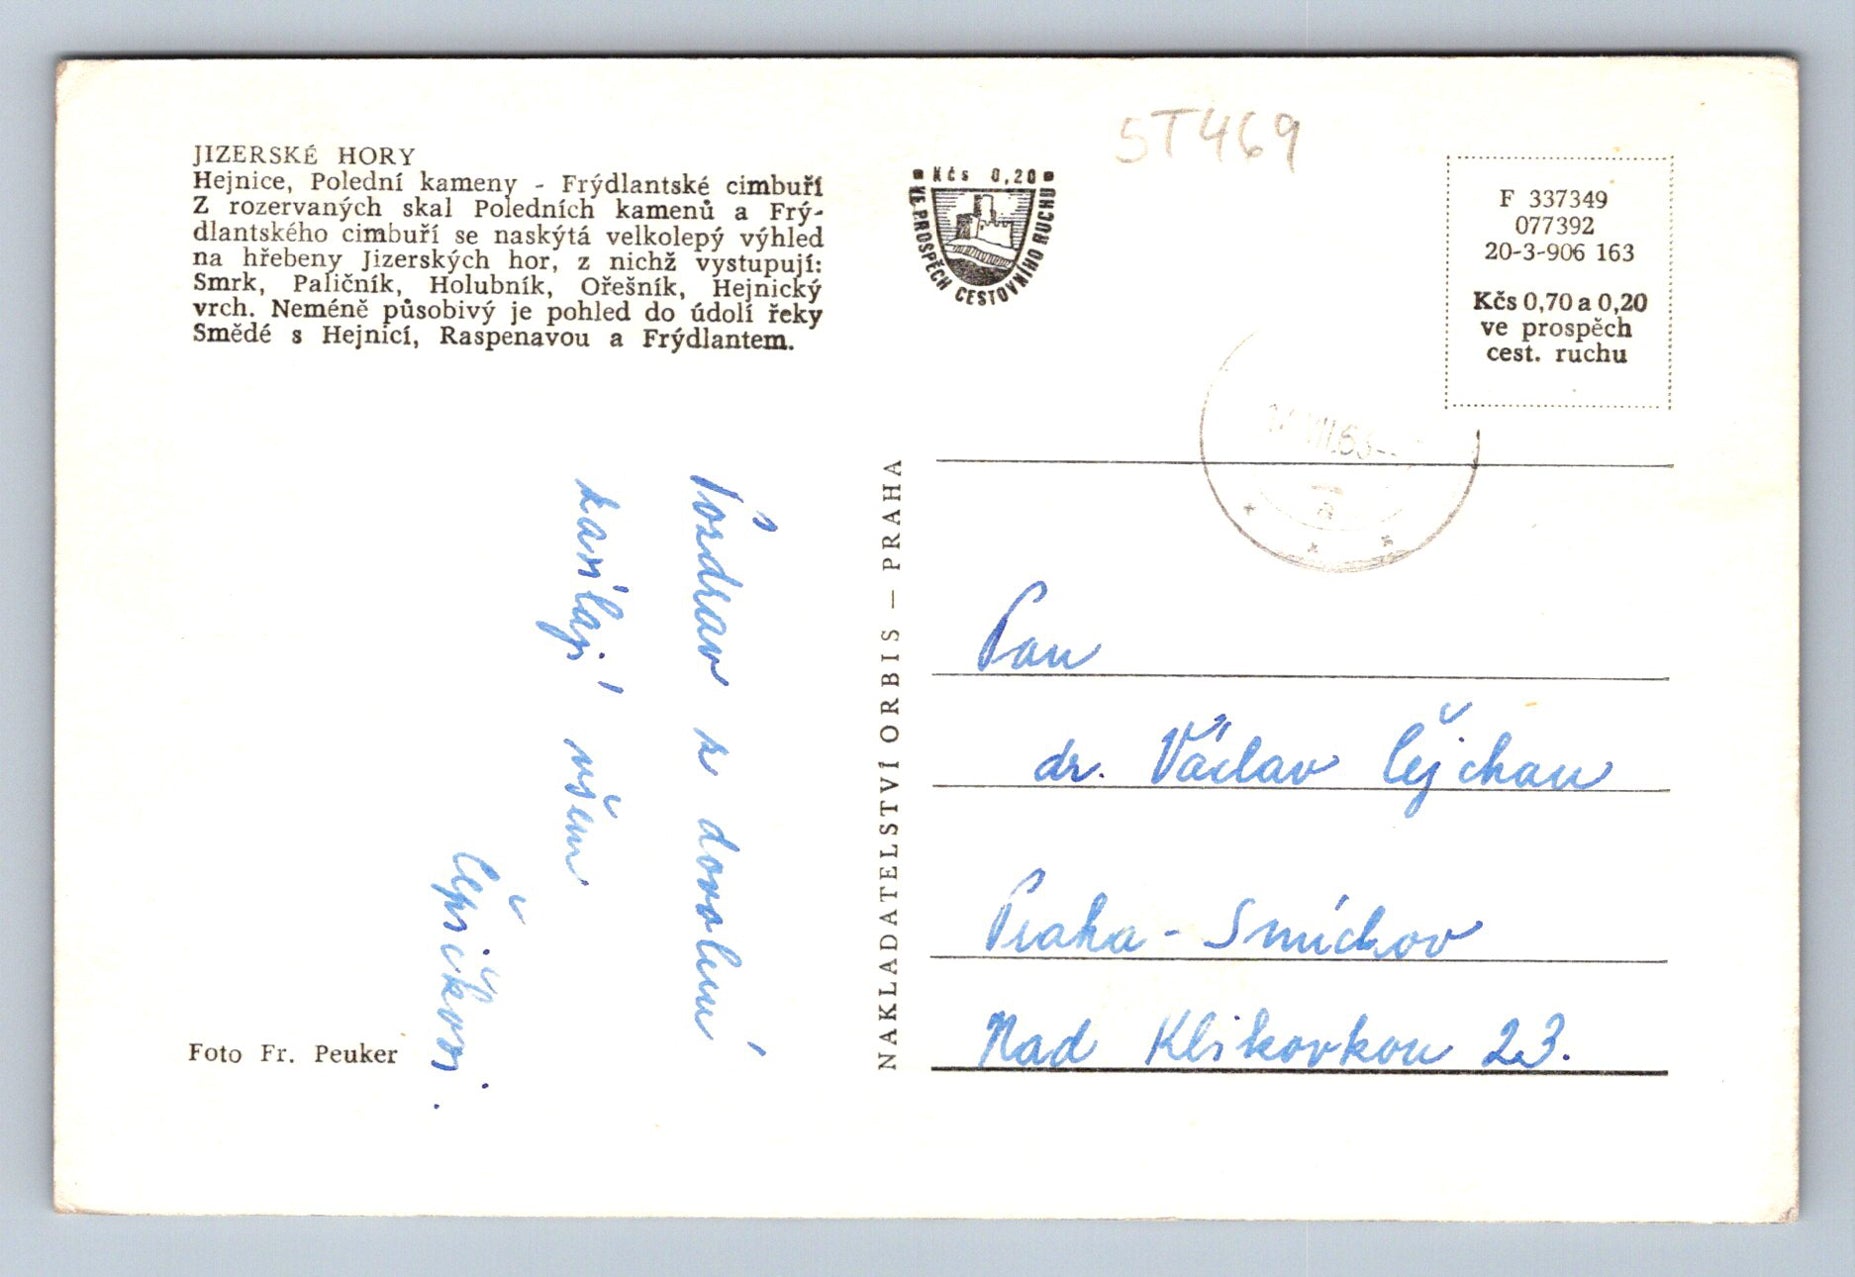 JIZERSKÉ HORY
Hejnice, Polední kameny - Frýdlantské cimbuří
Z rozervaných skal Poledních kamenů a Frý-
dlantského cimbuří se naskýtá velkolepý výhled
na hřebeny Jizerských hor, z nichž vystupují:
Smrk, Paličník, Holubník, Ořešník, Hejnický
vrch. Neméně působivý je pohled do údolí řeky
Smědé s Hejnicí, Raspenavou a Frýdlantem.
Pozdrav z dovolené
zasílají všem
Čepičkovi.
Foto Fr. Peuker
NAKLADATELSTVÍ ORBIS — PRAHA
Kčs 0,20
VE PROSPĚCH CESTOVNÍHO RUCHU
5T469
F 337349
077392
20-3-906 163
Kčs 0,70 a 0,20
ve prospěch
cest. ruchu
Pan
dr. Václav Čejchan
Praha - Smíchov
Nad Klikovkou 23.